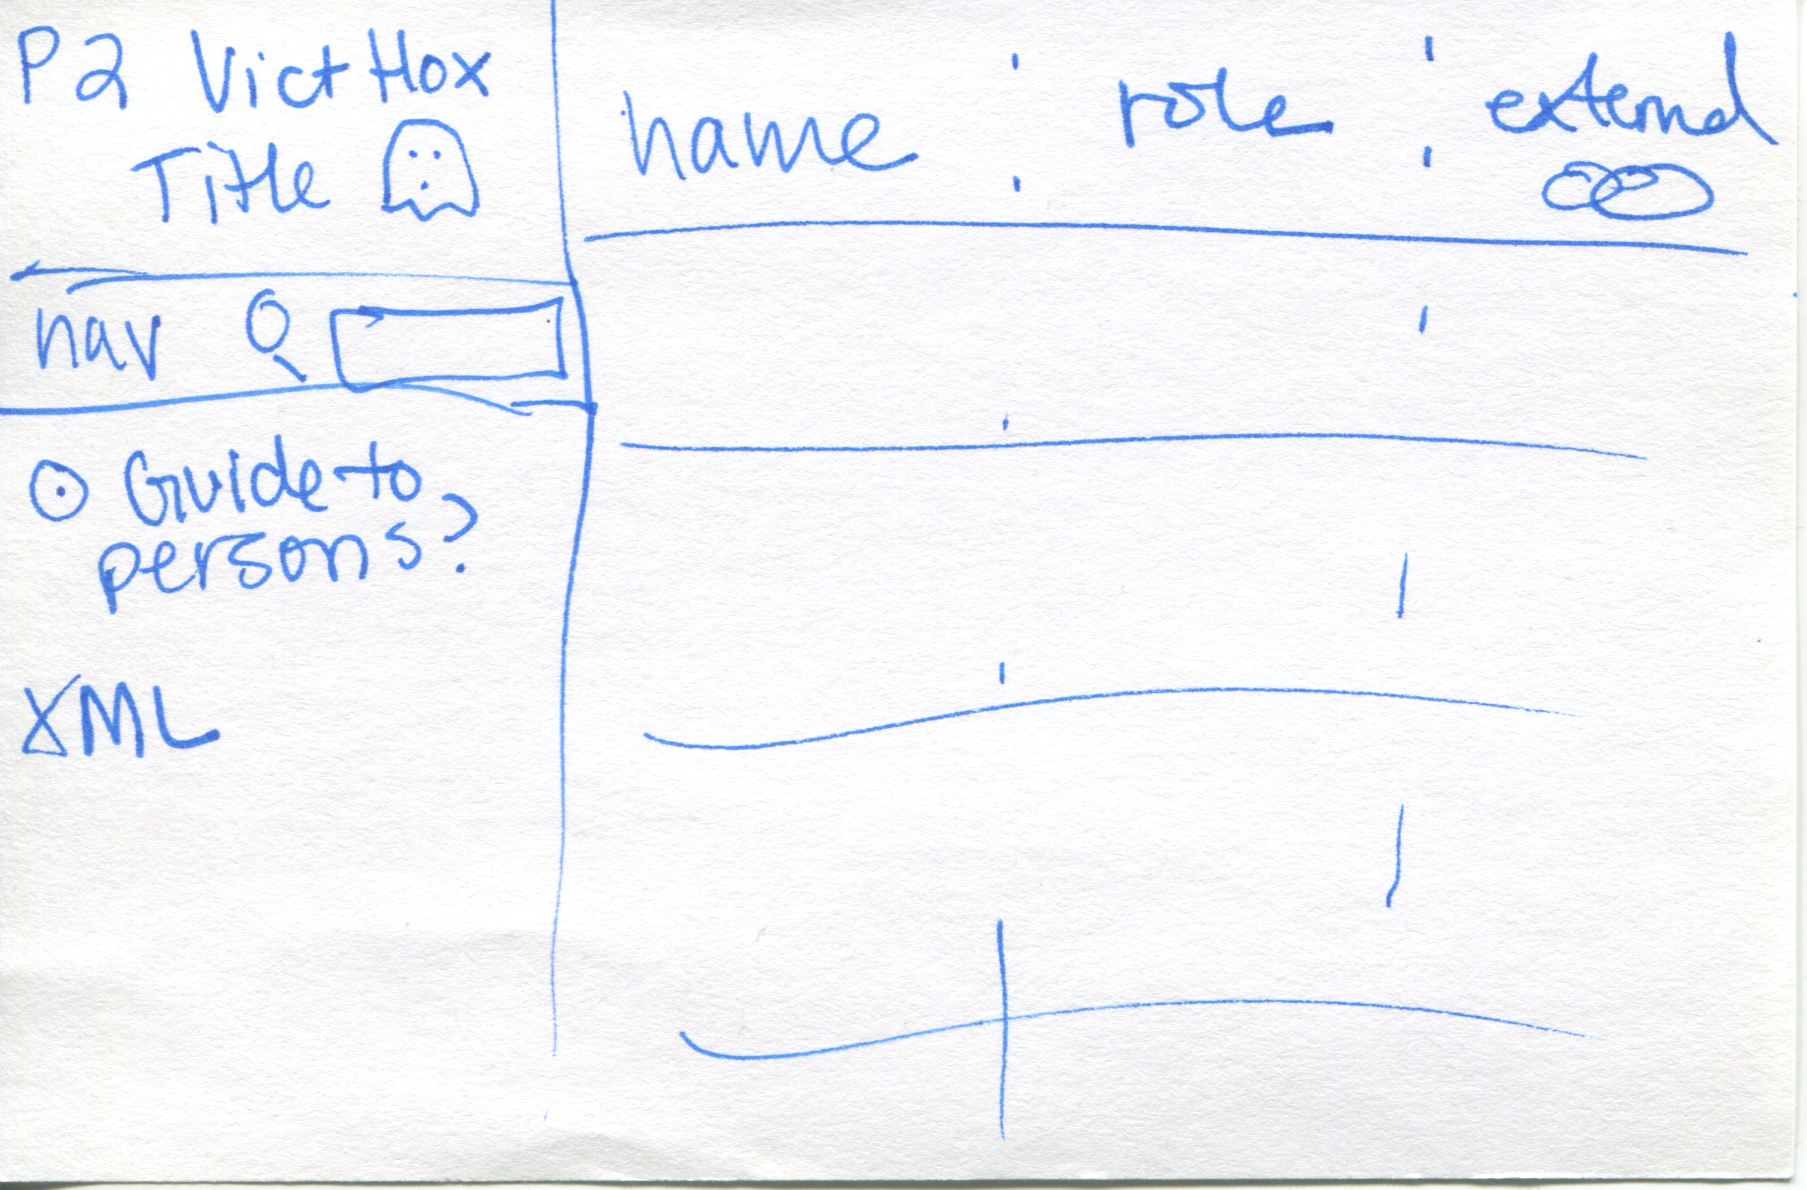 P2 Vict Hox
Title
nav
Guide to
persons?
XML
name
role
external